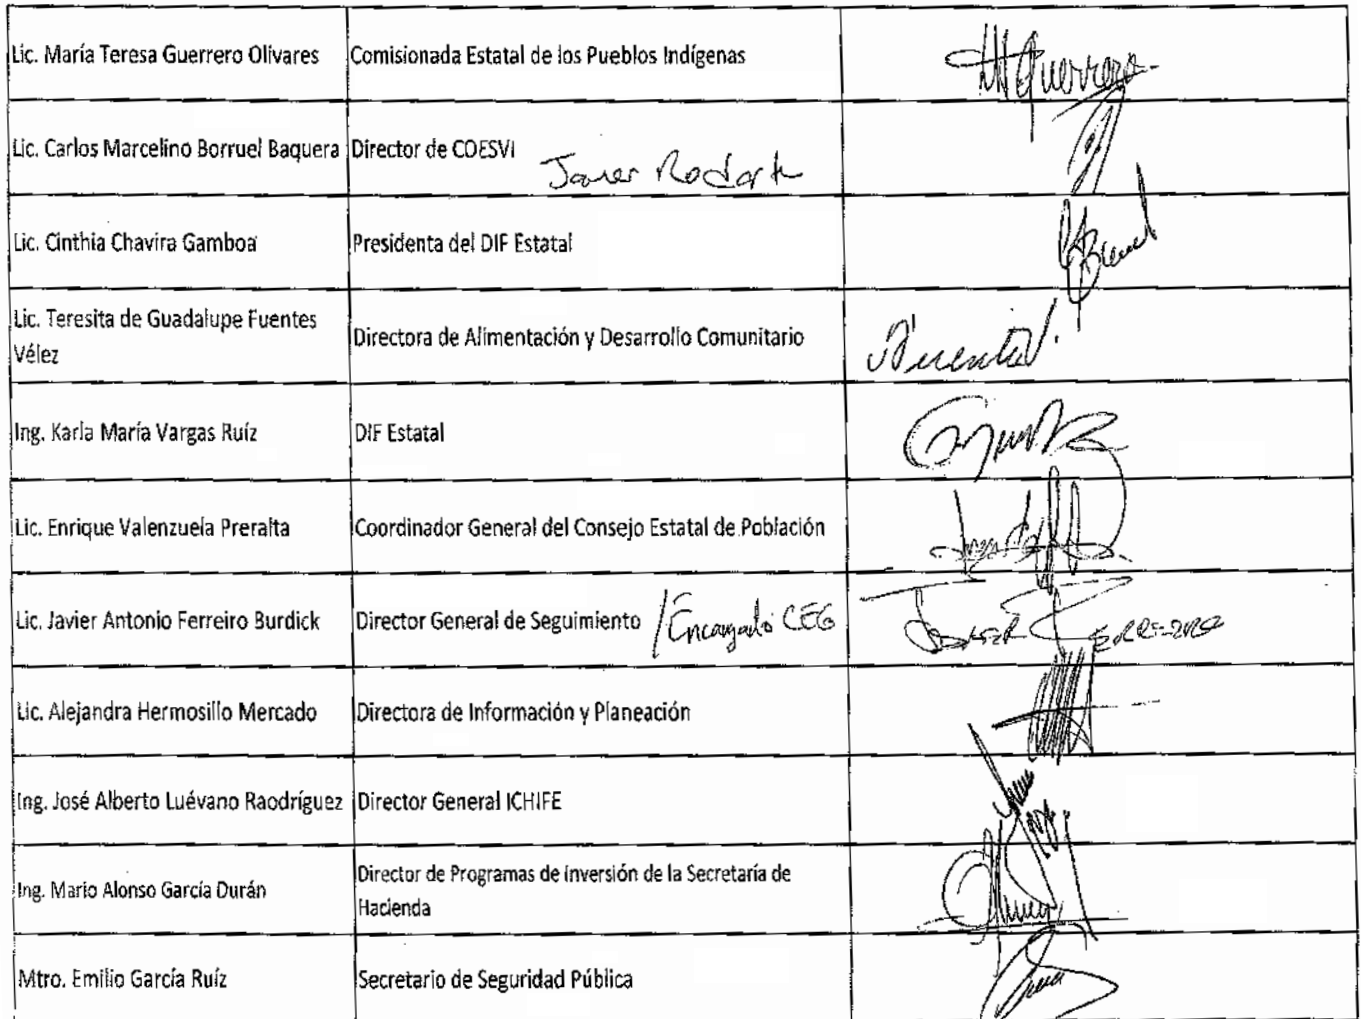 Lic. María Teresa Guerrero Olivares
Comisionada Estatal de los Pueblos Indígenas
Guerrero
Lic. Carlos Marcelino Borruel Baquera
Director de COESVI
Javier Rodarte
Lic. Cinthia Chavira Gamboa
Presidenta del DIF Estatal
Lic. Teresita de Guadalupe Fuentes
Vélez
Directora de Alimentación y Desarrollo Comunitario
Ing. Karla María Vargas Ruíz
DIF Estatal
Lic. Enrique Valenzuela Preralta
Coordinador General del Consejo Estatal de Población
Lic. Javier Antonio Ferreiro Burdick
Director General de Seguimiento /Encargado CEG
Javier Ferreiro
Lic. Alejandra Hermosillo Mercado
Directora de Información y Planeación
Ing. José Alberto Luévano Raodríguez
Director General ICHIFE
Ing. Mario Alonso García Durán
Director de Programas de inversión de la Secretaría de
Hacienda
Mtro. Emilio García Ruíz
Secretario de Seguridad Pública